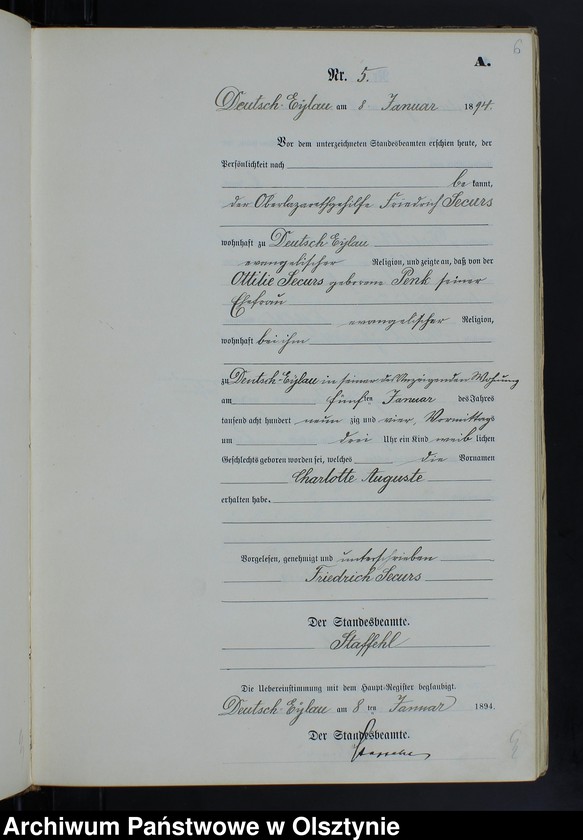 6
A.
Nr. 5.
Deutsch-Eylau am 8 Januar 1894.
Vor dem unterzeichneten Standesbeamten erschien heute, der
Persönlichkeit nach
be kannt,
der Oberlazarethgehilfe Friedrich Securs
wohnhaft zu Deutsch Eylau
evangelischer Religion, und zeigte an, daß von der
Ottilie Securs geborene Penk seiner
Ehefrau
evangelischer Religion,
wohnhaft bei ihm
zu Deutsch-Eylau in seiner des Anzeigenden Wohnung
am fünften Januar des Jahres
tausend acht hundert neun zig und vier, Vormittags
um drei Uhr ein Kind weib lichen
Geschlechts geboren worden sei, welches die Vornamen
Charlotte Auguste
erhalten habe.
Vorgelesen, genehmigt und unterschrieben
Friedrich Securs
Der Standesbeamte.
Staffehl
Die Uebereinstimmung mit dem Haupt-Register beglaubigt.
Deutsch-Eylau am 8 ten Januar 1894.
Der Standesbeamte.
Archiwum Państwowe w Olsztynie